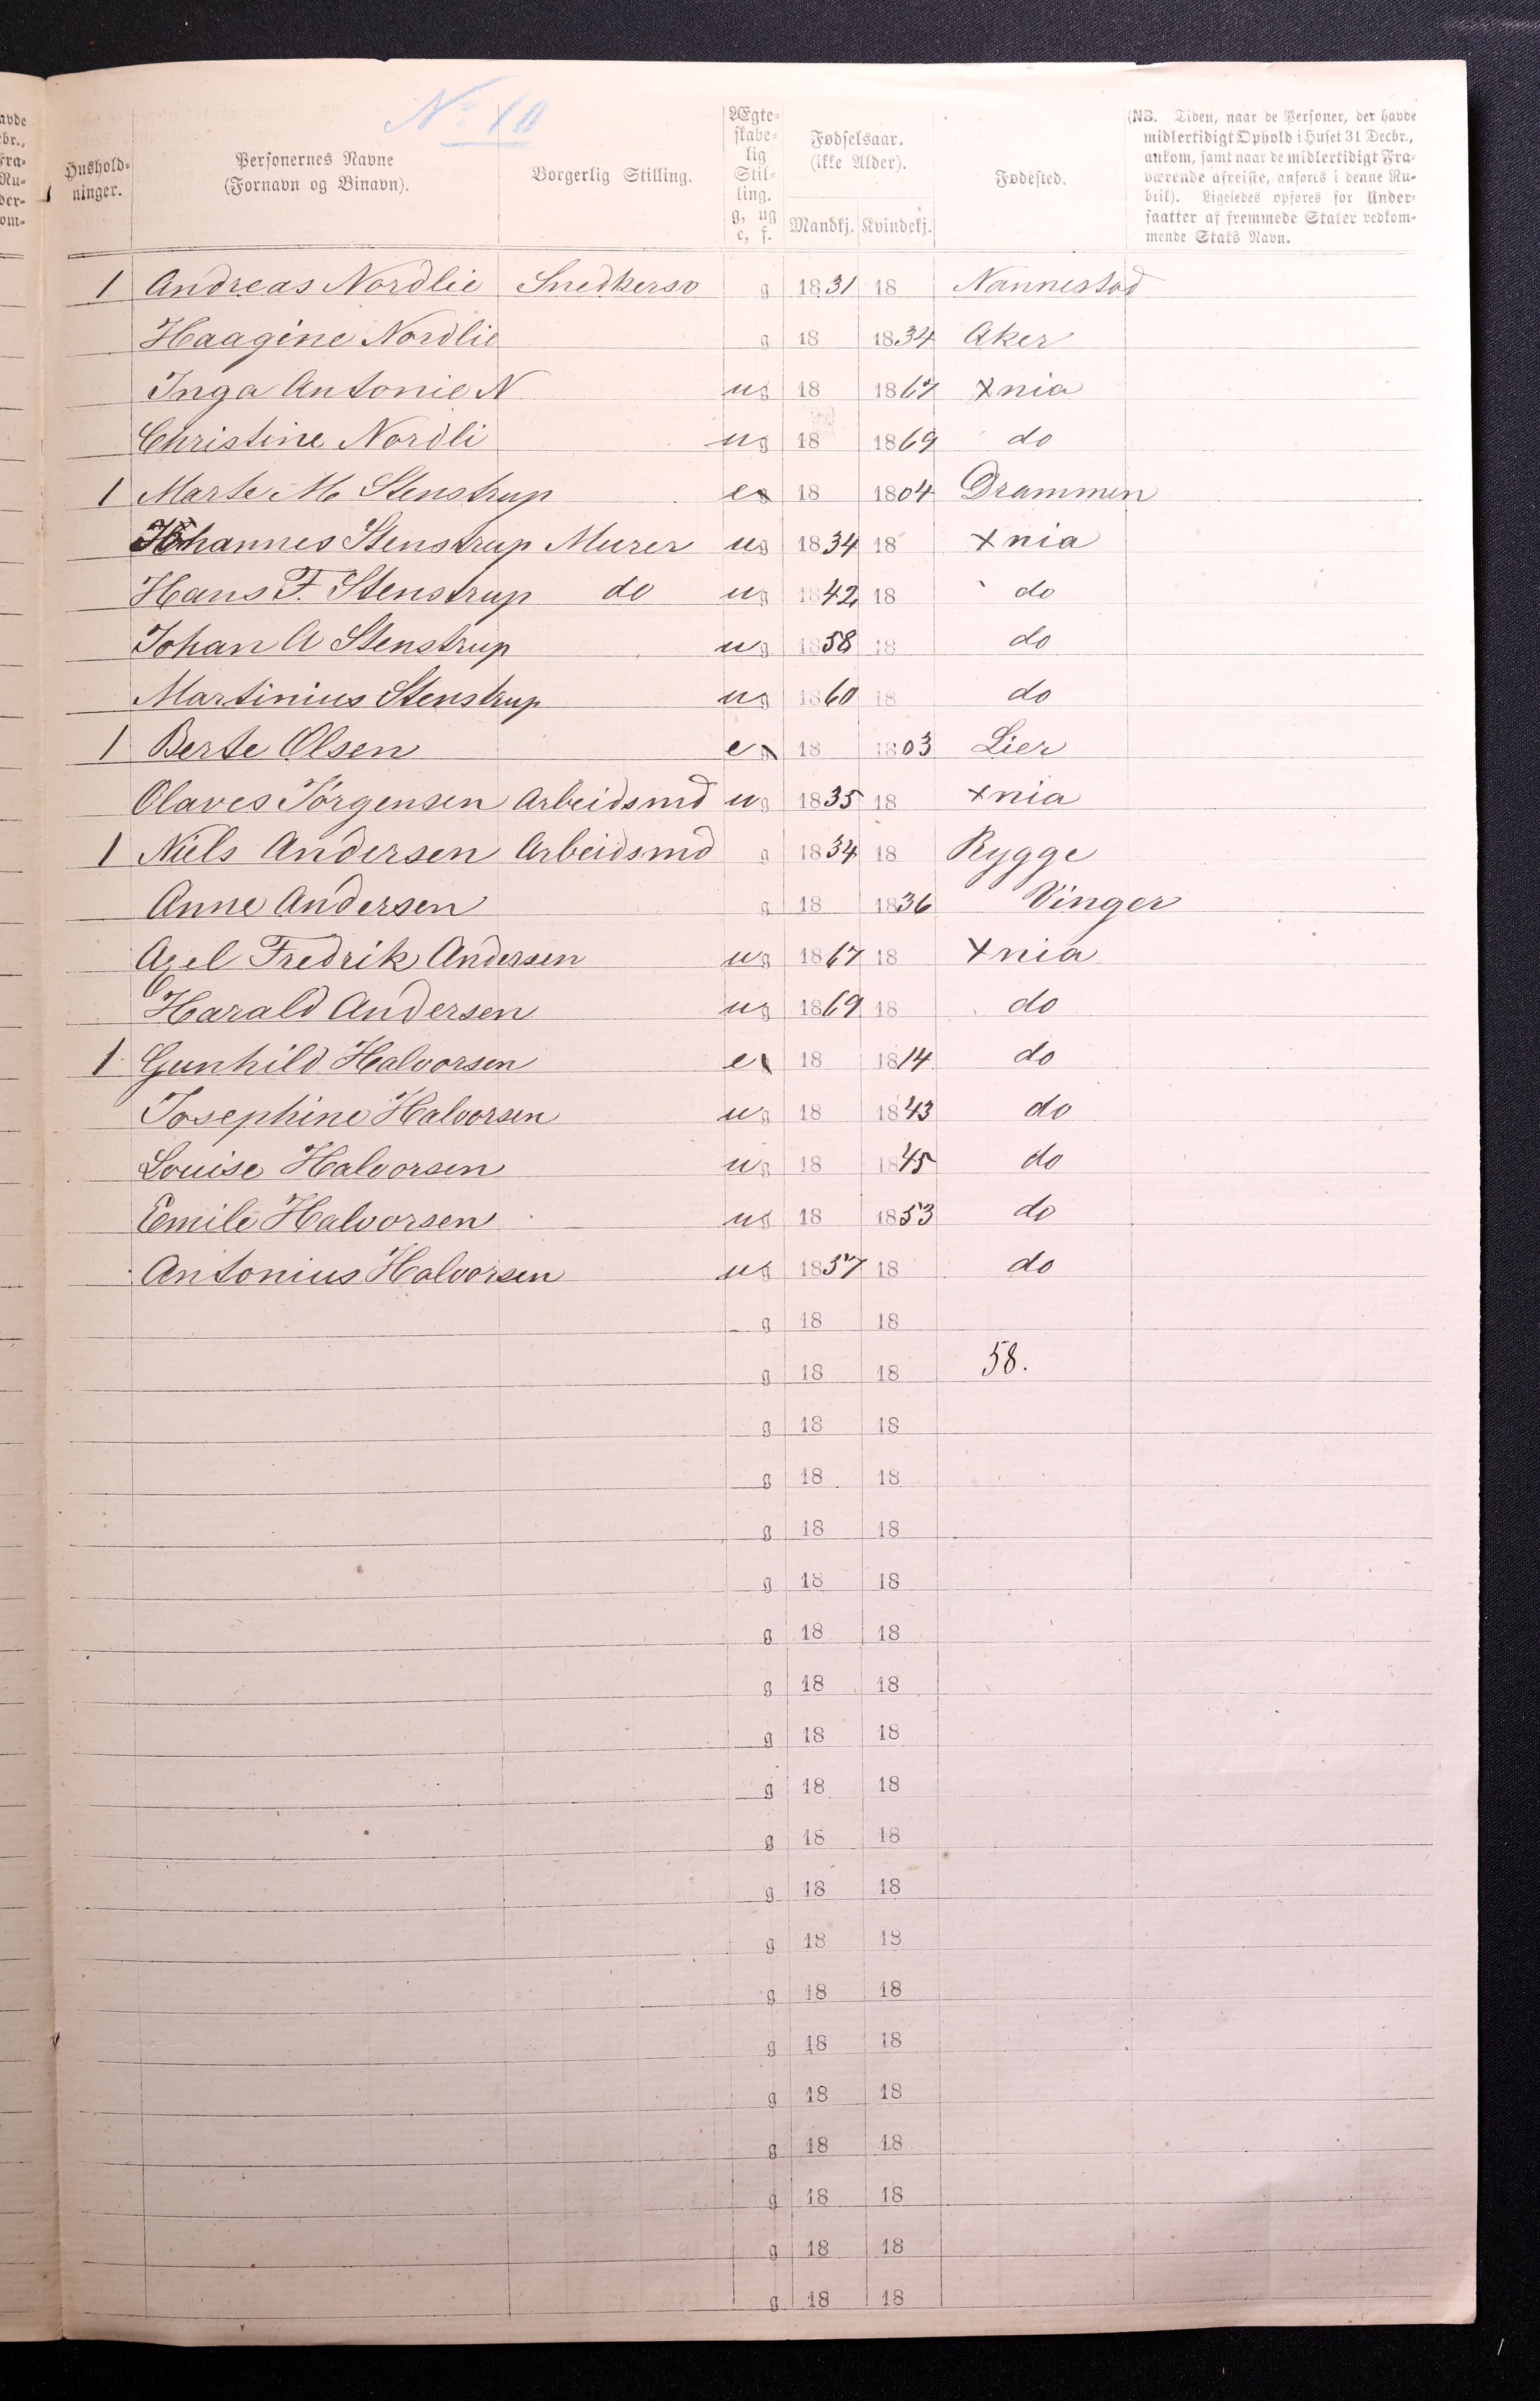 No 10
Hushold-
ninger.
Personernes Navne
(Fornavn og Binavn).
Borgerlig Stilling.
Ægte-
skabe-
lig
Stil-
ling.
g, ug
e, f.
Fødselsaar.
(ikke Alder).
Mandkj. Kvindekj.
Fødested.
(NB. Tiden, naar de Personer, der havde
midlertidigt Ophold i Huset 31 Decbr.,
ankom, samt naar de midlertidigt Fra-
værende afreiste, anføres i denne Ru-
brik). Ligeledes opføres for Under-
saatter af fremmede Stater vedkom-
mende Stats Navn.
1 Andreas Nordlie Snedkersv g 1831 18 Nannestad
Haagine Nordlie g 18 1834 Aker
Inga Antonie N ug 18 1867 Xnia
Christine Nordli ug 18 1869 do
1 Marte M Stenstrup e 18 1804 Drammen
Johannes Stenstrup Murer ug 1834 18 Xnia
Hans F. Stenstrup do ug 1842 18 do
Johan A Stenstrup ug 1858 18 do
Martinius Stenstrup ug 1860 18 do
1 Berte Olsen e 18 1803 Lier
Olaves Jörgensen Arbeidsmd ug 1835 18 Xnia
1 Niels Andersen Arbeidsmd g 1834 18 Rygge
Anne Andersen g 18 1836 Vinger
Axel Fredrik Andersen ug 1867 18 Xnia
Harald Andersen ug 1869 18 do
1 Gunhild Halvorsen e 18 1814 do
Josephine Halvorsen ug 18 1843 do
Louise Halvorsen ug 18 1845 do
Emile Halvorsen ug 18 1853 do
Antonius Halvorsen ug 1857 18 do
g 18 18
g 18 18 58.
g 18 18
g 18 18
g 18 18
g 18 18
g 18 18
g 18 18
g 18 18
g 18 18
g 18 18
g 18 18
g 18 18
g 18 18
g 18 18
g 18 18
g 18 18
g 18 18
g 18 18
g 18 18